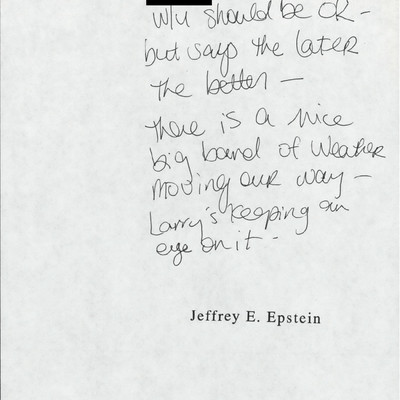 W/U should be OK -
but says the later
the better —
there is a nice
big band of weather
moving our way —
Larry's keeping an
eye on it -
Jeffrey E. Epstein